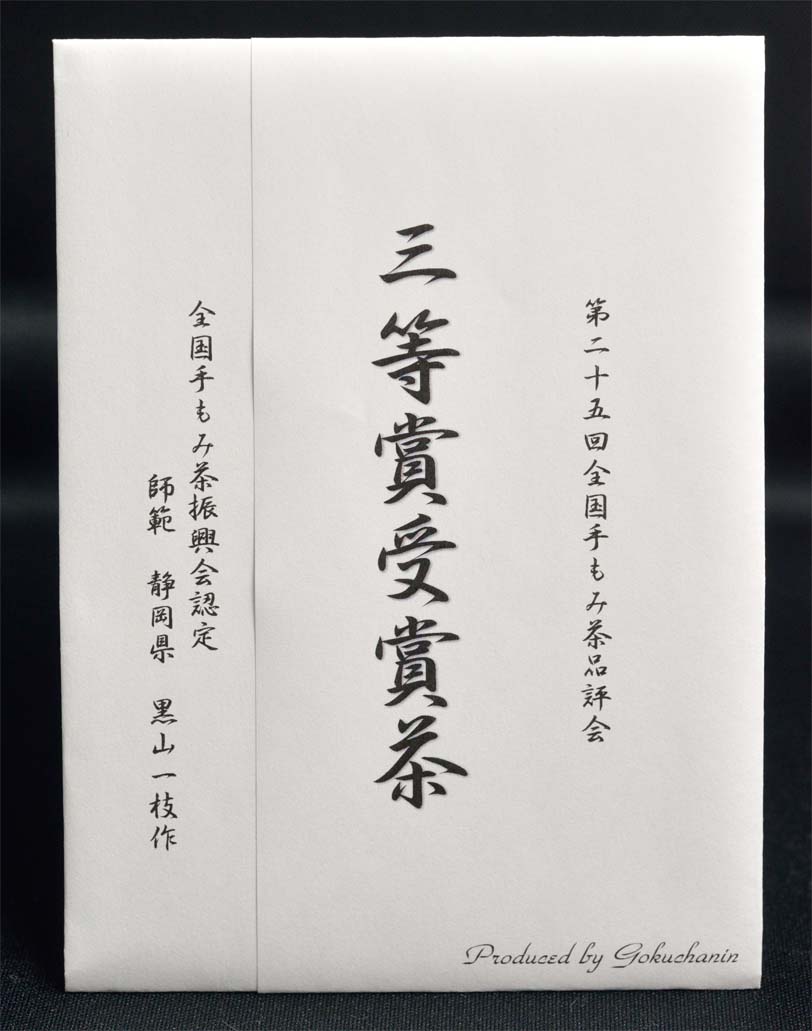 第二十五回全国手もみ茶品評会
三等賞受賞茶
全国手もみ茶振興会認定
師範　静岡県　黒山一枝作
Produced by Gokuchanin